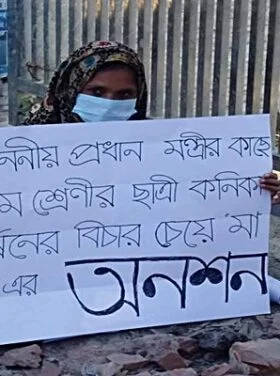 ননীয় প্রধান মন্ত্রীর কাছে
ম শ্রেণীর ছাত্রী কনিক
র্ষনের বিচার চেয়ে মা
এর অনশন